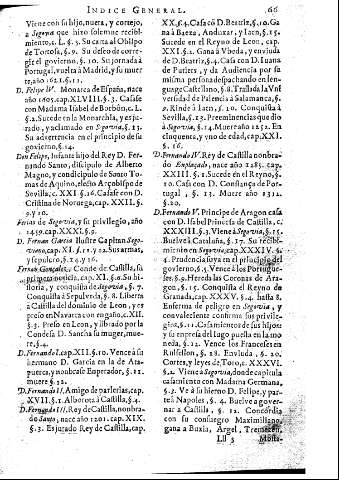 INDICE GENERAL.
66
Viene con su hijo, nuera, y cortejo,
a Segovia que hizo solemne recibi-
miento, c. L. §. 3. Su carta al Obispo
de Tortosa, §. 9. Su deseo de corre-
gir el govierno, §. 10. Su jornada a
Portugal, vuelta a Madrid, y su muer
te, año 1621. §. 11.
D. Felipe IV. Monarca de España, nace
año 1605. cap. XLVIII. §. 3. Casase
con Madama Isabel de Borbòn, c. L.
§. 2. Sucede en la Monarchia, y es ju-
rado, y aclamado en Segovia, §. 13.
Su advertencia en el principio de su
govierno, §. 14.
Don Felipe, Infante hijo del Rey D. Fer-
nando Santo, discipulo de Alberto
Magno, y condicipulo de Santo To-
mas de Aquino, electo Arçobispo de
Sevilla, c. XXI. §. 16. Casase con D.
Cristina de Noruega, cap. XXII. §.
9. y 10.
Ferias de Segovia, y su privilegio, año
1459. cap. XXXI. §. 9.
D. Fernan Garcia Ilustre Capitan Sego-
viano, cap. XI. §. 11. y 12. Sus armas,
y sepulcro, §. 14. y 16.
Fernan Gonçalez, Conde de Castilla, su
primera noticia, cap. XI. §. 6. Su his-
storia, y conquista de Segovia, §. 7.
Conquista à Sepulveda, §. 8. Liberta
à Castilla del dominio de Leon, y es
preso en Navarra con engaño, c. XII.
§. 3. Preso en Leon, y librado por la
Condesa D. Sancha su muger, mue-
re, §. 4.
D. Fernando I. cap. XII. §. 10. Vence a su
hermano D. Garcia en la de Ata-
puerca, y nonbrase Enperador, §. 12.
muere §. 32.
D. Fernando II. Amigo de parlerias, cap.
XVII. §. 1. Alborota à Castilla, §. 4.
D. Fernando III. Rey de Castilla, nonbra-
do Santo, nace año 1201. cap. XIX.
§. 3. Es jurado Rey de Castilla, cap.
XX. §. 4. Casa cõ D. Beatriz, §. 10. Ga
na à Baeza, Anduxar, y Iaen, §. 15.
Sucede en el Reyno de Leon, cap.
XXI. §. 1. Gana à Vbeda, y enviuda
de D. Beatriz, §. 4. Casa con D. Iuana
de Putiers, y da Audiencia por sì
misma persona despachando en len-
guage Castellano, §. 8. Traslada la Vni
versidad de Palencia à Salamanca, §.
9. Rinde à Iaen, §. 10. Conquista à
Sevilla, §. 13. Preeminencias que diò
à Segovia, §. 14. Muere año 1252. En
cinquenta, y vno de edad, cap. XXI.
§. 16.
D. Fernando IV. Rey de Castilla nonbra-
do Enplaçado, nace año 1285. cap.
XXIII. §. 1. Sucede en el Reyno, §.
10. Casa con D. Constança de Por-
tugal, §. 13. Muere año 1312.
§. 20.
D. Fernando V. Principe de Aragon casa
con D. Isabel Princesa de Castilla, c.
XXXIII. §. 3. Viene à Segovia, §. 15.
Buelve à Cataluña, §. 17. Su recibi-
miento en Segovia, cap. XXXIV. §.
4. Prudencia suya en el principio del
govierno, §. 5. Vence à los Portugue-
ses, §. 9. Hereda las Coronas de Ara-
gon, §. 15. Conquista el Reyno de
Granada, cap. XXXV. §. 4. hasta 8.
Enferma de peligro en Segovia, y
convaleciente confirma sus privile-
gios, §. 11. Casamientos de sus hijos;
y su enpresa del iugo puesta en la mo
neda, §. 12. Vence los Franceses en
Rusellon, §. 18. Enviuda, §. 20.
Cortes, y leyes de Toro, c. XXXVI.
§. 2. Viene à Segovia, donde capitula
casamiento con Madama Germana,
§. 3. Vè à su hierno D. Felipe, y par-
te à Napoles, §. 4. Buelve a gover-
nar à Castilla, §. 12. Concordia
con su consuegro Maximiliano,
gana à Buxia, Argel, Tremecen,
Lll 3
Mosta-